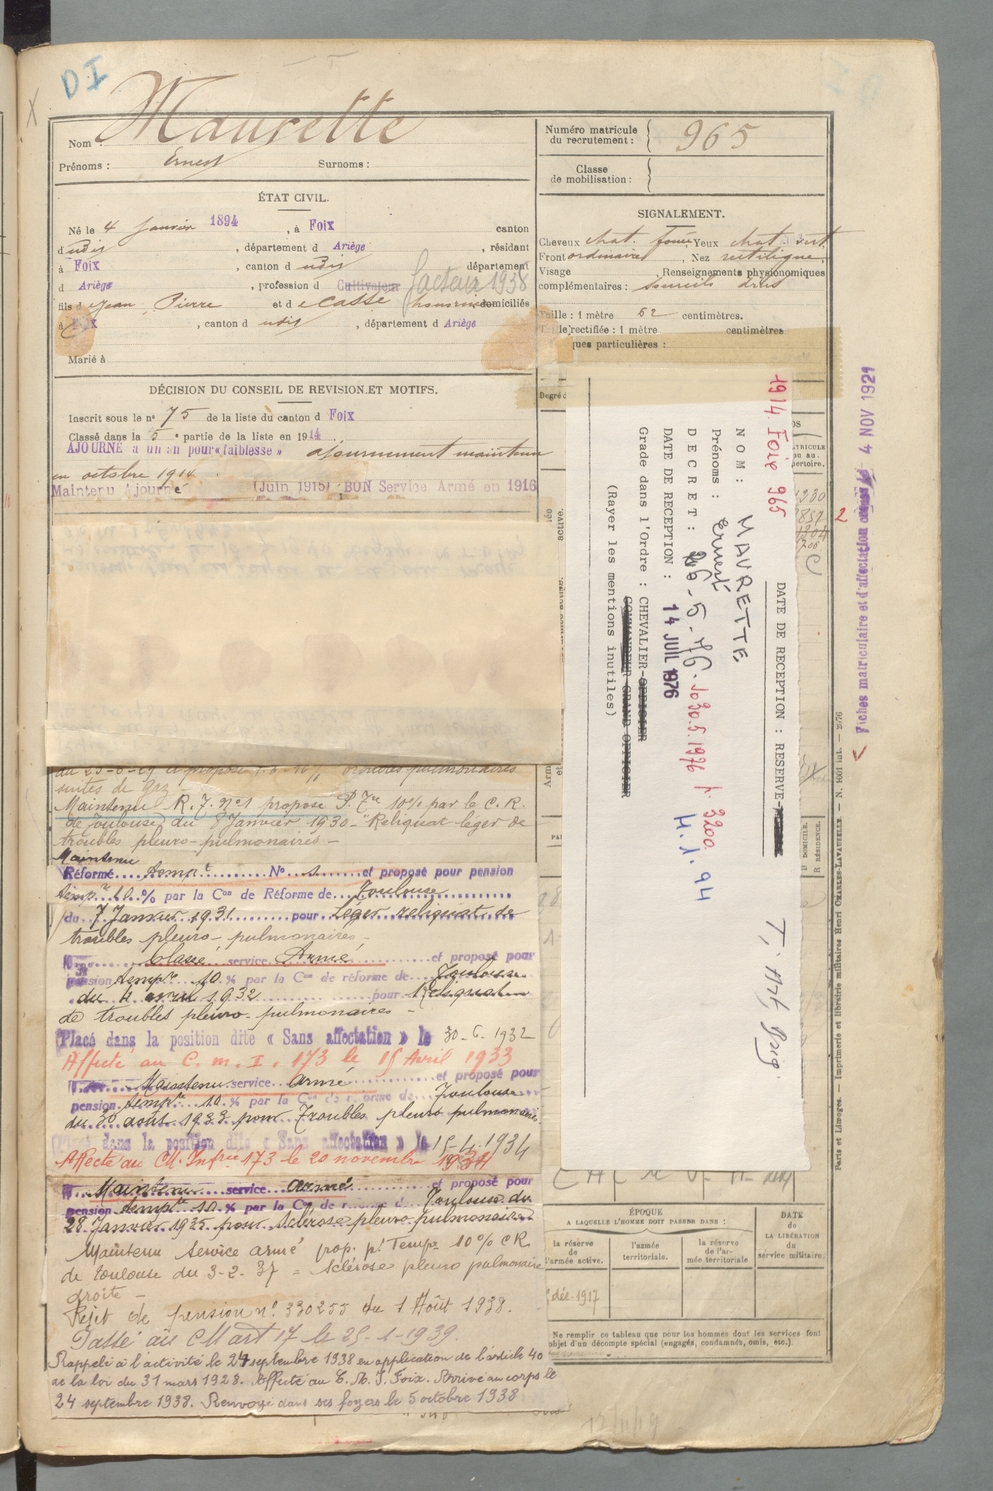 DI
Nom : Maurette
Prénoms : Ernest Surnoms :
Numéro matricule du recrutement : 965
Classe de mobilisation :
ÉTAT CIVIL.
Né le 4 Janvier 1894, à Foix canton
dudis, département d Ariège, résidant
à Foix, canton d udis département
d Ariège, profession d Cultivateur facteur 1938
fils d Jean Pierre et d e Casse domiciliés
à Foix, canton d udis, département d Ariège
Marié à
SIGNALEMENT.
Cheveux chat. foncé Yeux chat vert
Front ordinaire, Nez rectiligne
Visage , Renseignements physionomiques
complémentaires : sourcils
Taille : 1 mètre 62 centimètres.
Taille rectifiée : 1 mètre centimètres
ques particulières :
DÉCISION DU CONSEIL DE REVISION ET MOTIFS.
Inscrit sous le n° 75 de la liste du canton d Foix
Classé dans la 5e partie de la liste en 1914
AJOURNÉ à un an pour « faiblesse » ajournement maintenu
en octobre 1914
Maintenu ajourné (Juin 1915) BON Service Armé en 1916
Degré
1914 Foix 965
DATE DE RECEPTION : RESERVE-
NOM : MAURETTE
Prénoms : Ernest
DECRET : 26-5-76. 1030.5.1976 p. 3200
DATE DE RECEPTION : 14 JUIL 1976 H.1.94
Grade dans l'Ordre : CHEVALIER-OFFICIER
COMMANDEUR GRAND OFFICIER
(Rayer les mentions inutiles)
Fiches matriculaire et d'affectation 4 NOV 1921
du 25-6-29 a proposé
suites de gaz
Maintenu R.F. n°1 proposé P. Tre 10% par le C. R.
de Toulouse du 7 Janvier 1930 - Reliquat léger de
troubles pleuro-pulmonaires -
Maintenu
Réformé tempre N° 1 et proposé pour pension
tempre 10 % par la Con de Réforme de Toulouse
du 7 Janvier 1931 pour Léger reliquat de
troubles pleuro-pulmonaires -
Classé service Armé et proposé pour
pension tempre 10 % par la Con de réforme de Toulouse
du 4 avril 1932 pour Reliquat
de troubles pleuro-pulmonaires -
Placé dans la position dite « Sans affectation » le 30-6-1932
Affecté au C. M. I. 173 le 15 Avril 1933
Maintenu service armé et proposé pour
pension tempre 10 % par la Con de réforme de Toulouse
du 30 août 1933 pour Troubles pleuro pulmonaires
Placé dans la position dite « Sans affectation » le 15-4-1934
Affecté au CM. Infrie 173 le 20 novembre 1934
Maintenu service armé et proposé pour
pension tempre 10 % par la Con de réforme d. Toulouse du
28 Janvier 1935 pour Sclérose pleuro-pulmonaire
Maintenu Service armé prop. pr Tempe 10% CR
de Toulouse du 3-2-37 = Sclérose pleuro pulmonaire
droite -
Rejet de pension n° 330255 du 1 Août 1938.
Passé au CM art 17 le 25-1-1939.
Rappelé à l'activité le 24 septembre 1938 en application de l'article 40
de la loi du 31 mars 1928. Affecté au Foix. Arrivé au corps le
24 septembre 1938. Renvoyé dans ses foyers le 5 octobre 1938
ÉPOQUE
A LAQUELLE L'HOMME DOIT PASSER DANS :
DATE de LA LIBÉRATION du service militaire.
la réserve de l'armée active.
l'armée territoriale.
la réserve de l'armée territoriale
déc. 1917
Ne remplir ce tableau que pour les hommes dont les services font
objet d'un décompte spécial (engagés, condamnés, omis, etc.).
Paris et Limoges. — Imprimerie et librairie militaires Henri CHARLES-LAVAUZELLE
12/11/19